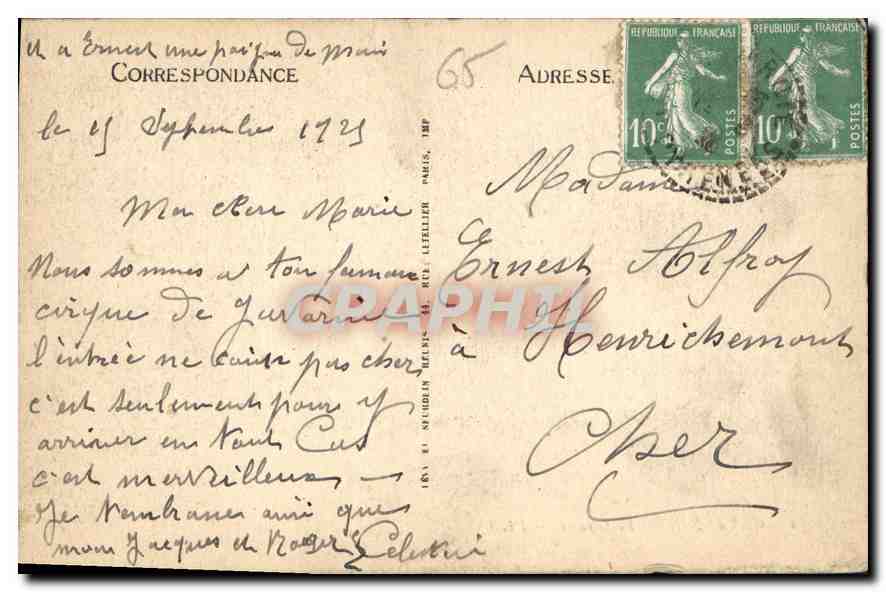 et a Ernest une poignée de main
CORRESPONDANCE
65
ADRESSE
REPUBLIQUE FRANÇAISE
10c
POSTES
REPUBLIQUE FRANÇAISE
10
POSTES
le 15 Septembre 1925
Ma chere Marie
Nous sommes a ton fameux
cirque de Gavarnie
l'entrée ne coute pas cher
c'est seulement pour y
arriver en tout Cas
c'est merveilleux
Je t'embrasse ainsi que
mon Jacques et Roger
Celestine
LÉVY ET NEURDEIN RÉUNIS, 44, RUE LETELLIER PARIS, IMP
Madame
Ernest Alfroy
à Henrichemont
Cher
CPAPHIL